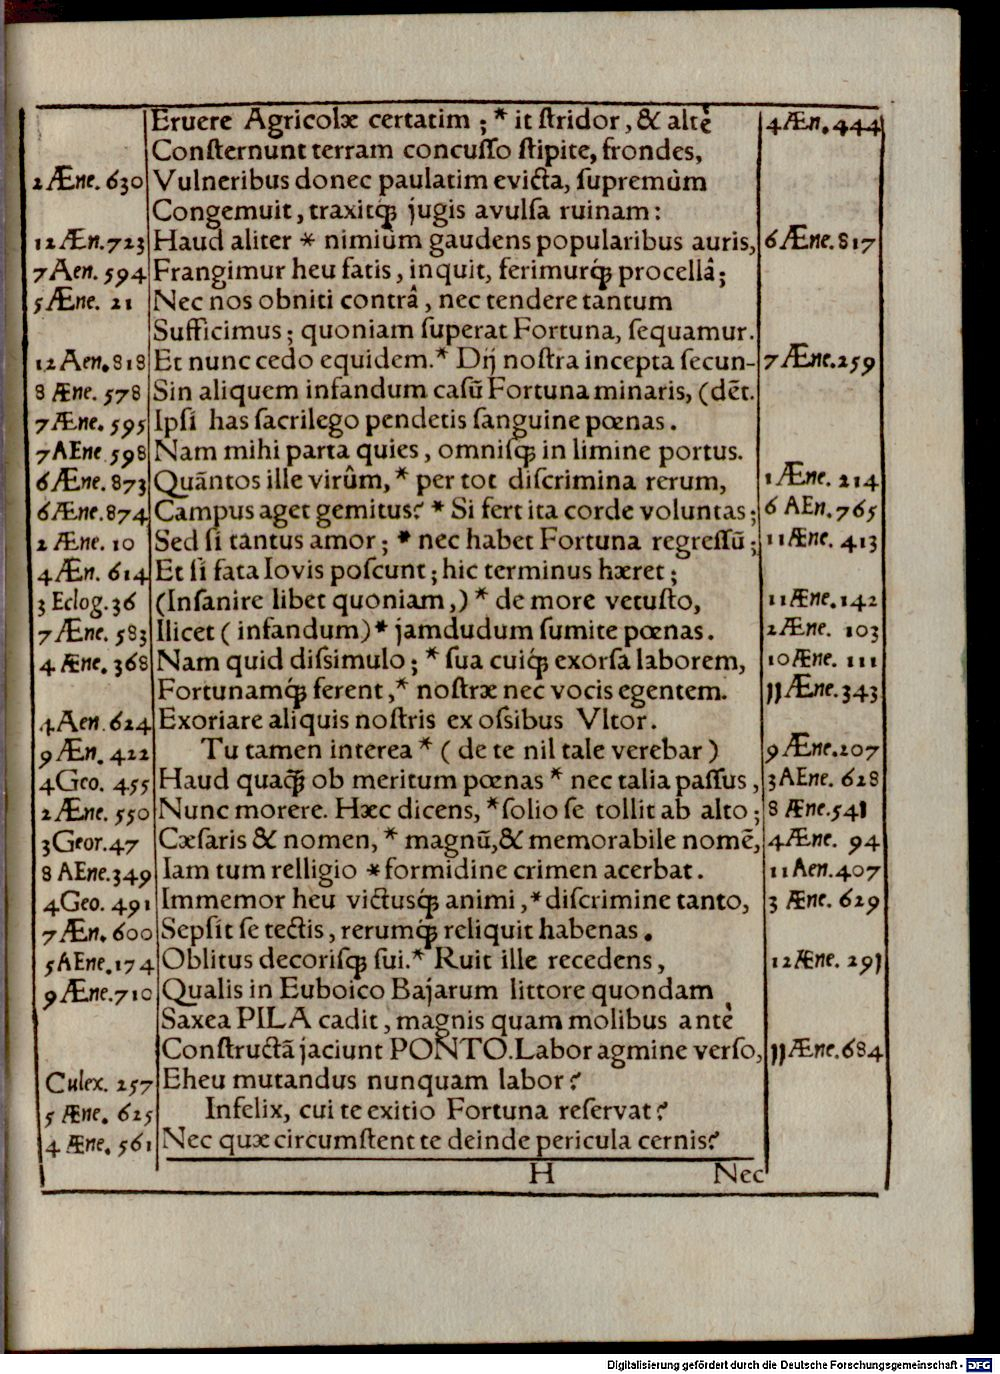 Eruere Agricolæ certatim ; * it ſtridor, & altè 4 Æn. 444
Conſternunt terram concuſſo ſtipite, frondes,
2 Æne. 630 Vulneribus donec paulatim evicta, ſupremùm
Congemuit, traxitq́ꝫ jugis avulſa ruinam:
12 Æn. 723 Haud aliter * nimiùm gaudens popularibus auris, 6 Æne. 817
7 Aen. 594 Frangimur heu fatis, inquit, ferimurq́ꝫ procellâ;
5 Æne. 21 Nec nos obniti contrâ, nec tendere tantum
Sufficimus; quoniam ſuperat Fortuna, ſequamur.
12 Aen. 818 Et nunc cedo equidem. * Dij noſtra incepta ſecun- 7 Æne. 259
8 Æne. 578 Sin aliquem infandum caſū Fortuna minaris, (dēt.
7 Æne. 595 Ipſi has ſacrilego pendetis ſanguine pœnas.
7 AEne 598 Nam mihi parta quies, omniſqꝫ in limine portus.
6 Æne. 873 Quāntos ille virûm, * per tot diſcrimina rerum, 1 Æne. 214
6 Æne. 874 Campus aget gemitus? * Si fert ita corde voluntas; 6 AEn. 765
2 Æne. 10 Sed ſi tantus amor; * nec habet Fortuna regreſſū; 11 Æne. 413
4 Æn. 614 Et ſi fata Iovis poſcunt; hic terminus hæret;
3 Eclog. 36 (Inſanire libet quoniam,) * de more vetuſto, 11 Æne. 142
7 Æne. 583 Ilicet ( infandum) * jamdudum ſumite pœnas. 2 Æne. 103
4 Æne. 368 Nam quid diſsimulo; * ſua cuiq́ꝫ exorſa laborem, 10 Æne. 111
Fortunamq́ꝫ ferent, * noſtræ nec vocis egentem. 11 Æne. 343
4 Aen. 624 Exoriare aliquis noſtris ex oſsibus Vltor.
9 Æn. 422 Tu tamen interea * ( de te nil tale verebar ) 9 Æne. 207
4 Geo. 455 Haud quaq̃ꝫ ob meritum pœnas * nec talia paſſus, 3 AEne. 628
2 Æne. 550 Nunc morere. Hæc dicens, * ſolio ſe tollit ab alto; 8 Æne. 541
3 Geor. 47 Cæſaris & nomen, * magnū, & memorabile nomē, 4 Æne. 94
8 AEne. 349 Iam tum relligio * formidine crimen acerbat. 11 Aen. 407
4 Geo. 491 Immemor heu victusq́ꝫ animi, * diſcrimine tanto, 3 Æne. 629
7 Æn. 600 Sepſit ſe tectis, rerumq́ꝫ reliquit habenas.
5 AEne. 174 Oblitus decoriſqꝫ ſui. * Ruit ille recedens, 12 Æne. 291
9 Æne. 710 Qualis in Euboico Bajarum littore quondam
Saxea PILA cadit, magnis quam molibus antè
Conſtructā jaciunt PONTO. Labor agmine verſo, 11 Æne. 684
Culex. 257 Eheu mutandus nunquam labor?
5 Æne. 625 Infelix, cui te exitio Fortuna reſervat?
4 Æne. 561 Nec quæ circumſtent te deinde pericula cernis?
H Nec
Digitalisierung gefördert durch die Deutsche Forschungsgemeinschaft - DFG